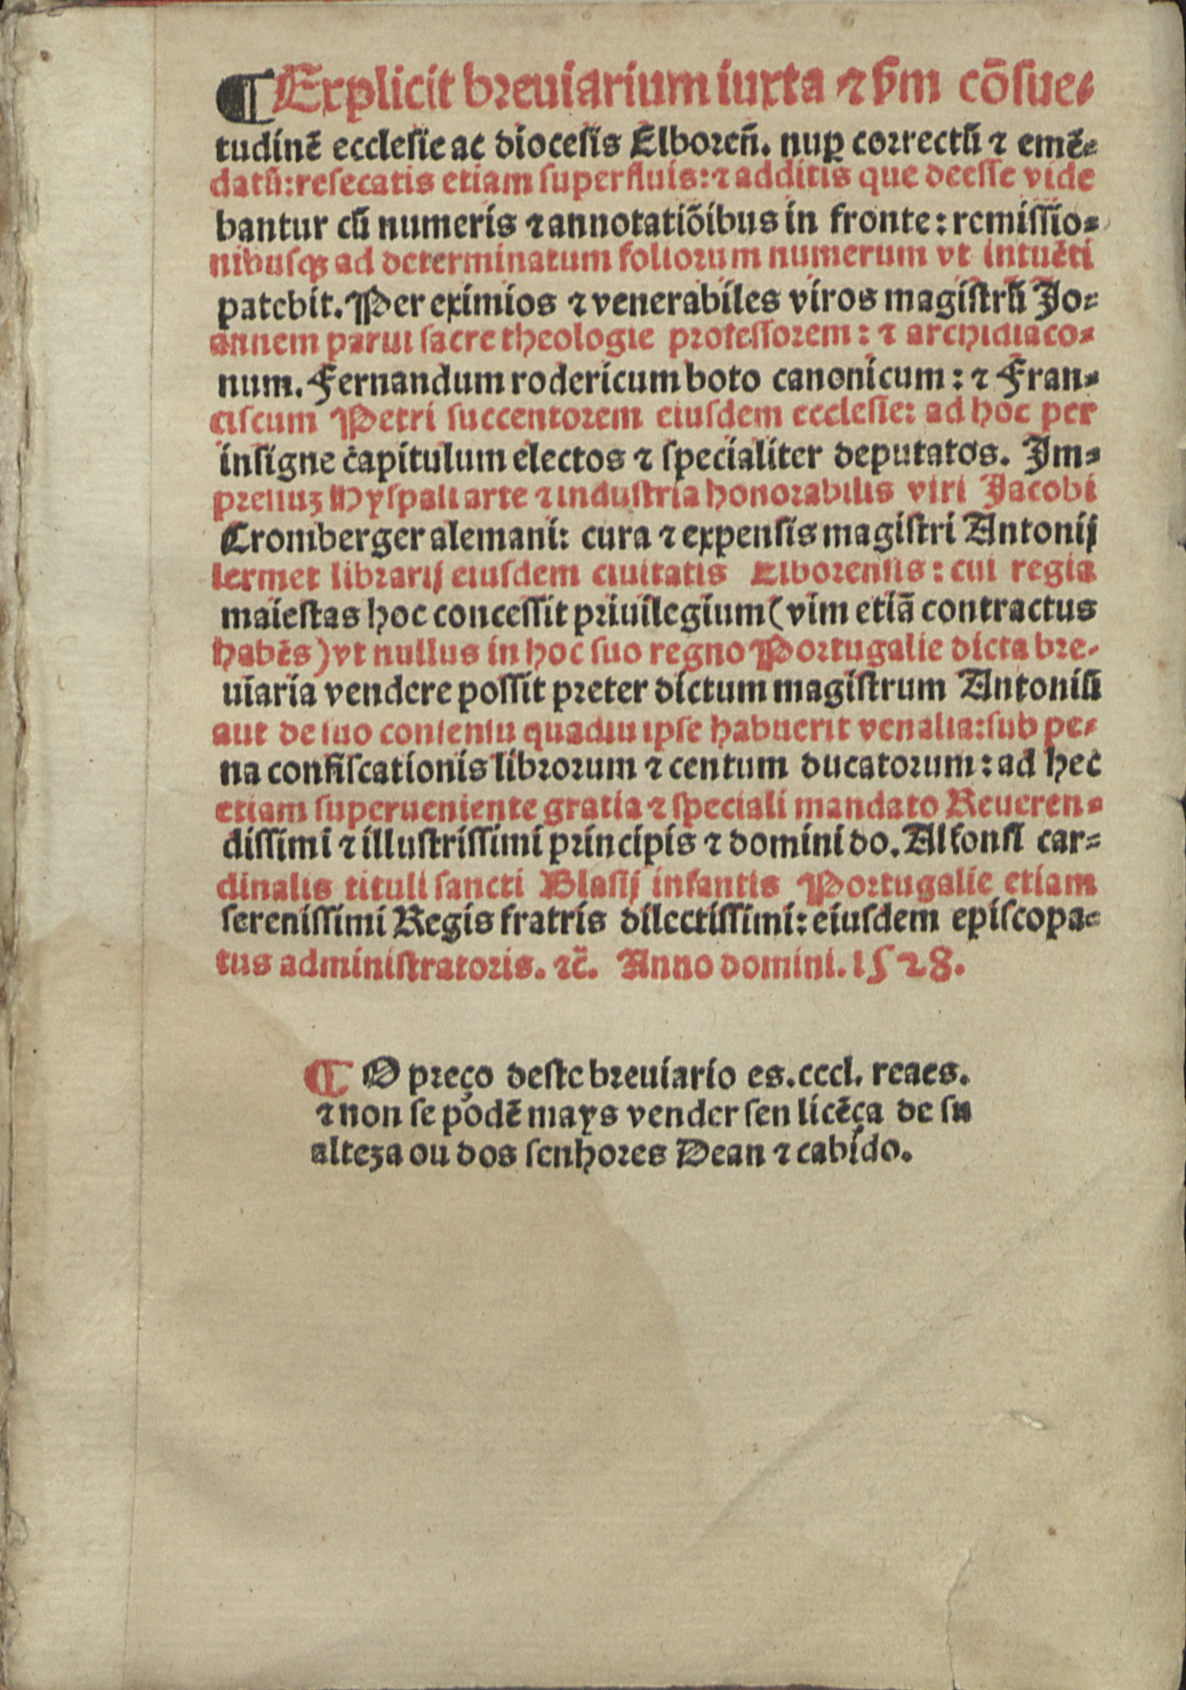 ¶Explicit breuiarium iuxta ⁊ ẜm cōsue-
tudinē ecclesie ac diocesis Elboreñ. nuꝑ correctū ⁊ emē-
datū: resecatis etiam superfluis: ⁊ additis que deesse vide
bantur cū numeris ⁊ annotatiōibus in fronte: remissio-
nibusqꝫ ad determinatum foliorum numerum vt intuēti
patebit. Per eximios ⁊ venerabiles viros magistrū Jo-
annem parui sacre theologie professorem: ⁊ archidiaco-
num. Fernandum rodericum boto canonicum: ⁊ Fran-
ciscum Petri succentorem eiusdem ecclesie: ad hoc per
insigne capitulum electos ⁊ specialiter deputatos. Im-
pressuꝫ Hyspali arte ⁊ industria honorabilis viri Jacobi
Cromberger alemani: cura ⁊ expensis magistri Antonij
lermet librarij eiusdem ciuitatis Elborensis: cui regia
maiestas hoc concessit priuilegium (vim etiā contractus
habēs) vt nullus in hoc suo regno Portugalie dicta bre-
uiaria vendere possit preter dictum magistrum Antoniū
aut de suo consensu quādiu ipse habuerit venalia: sub pe-
na confiscationis librorum ⁊ centum ducatorum: ad hec
etiam superueniente gratia ⁊ speciali mandato Reueren-
dissimi ⁊ illustrissimi principis ⁊ domini do. Alfonsi car-
dinalis tituli sancti Blasij infantis Portugalie etiam
serenissimi Regis fratris dilectissimi: eiusdem episcopa-
tus administratoris. ⁊c̄. Anno domini. 1528.
¶ O preço deste breuiario es. cccl. reaes.
⁊ non se podē mays vender sen licēça de su
alteza ou dos senhores Dean ⁊ cabido.